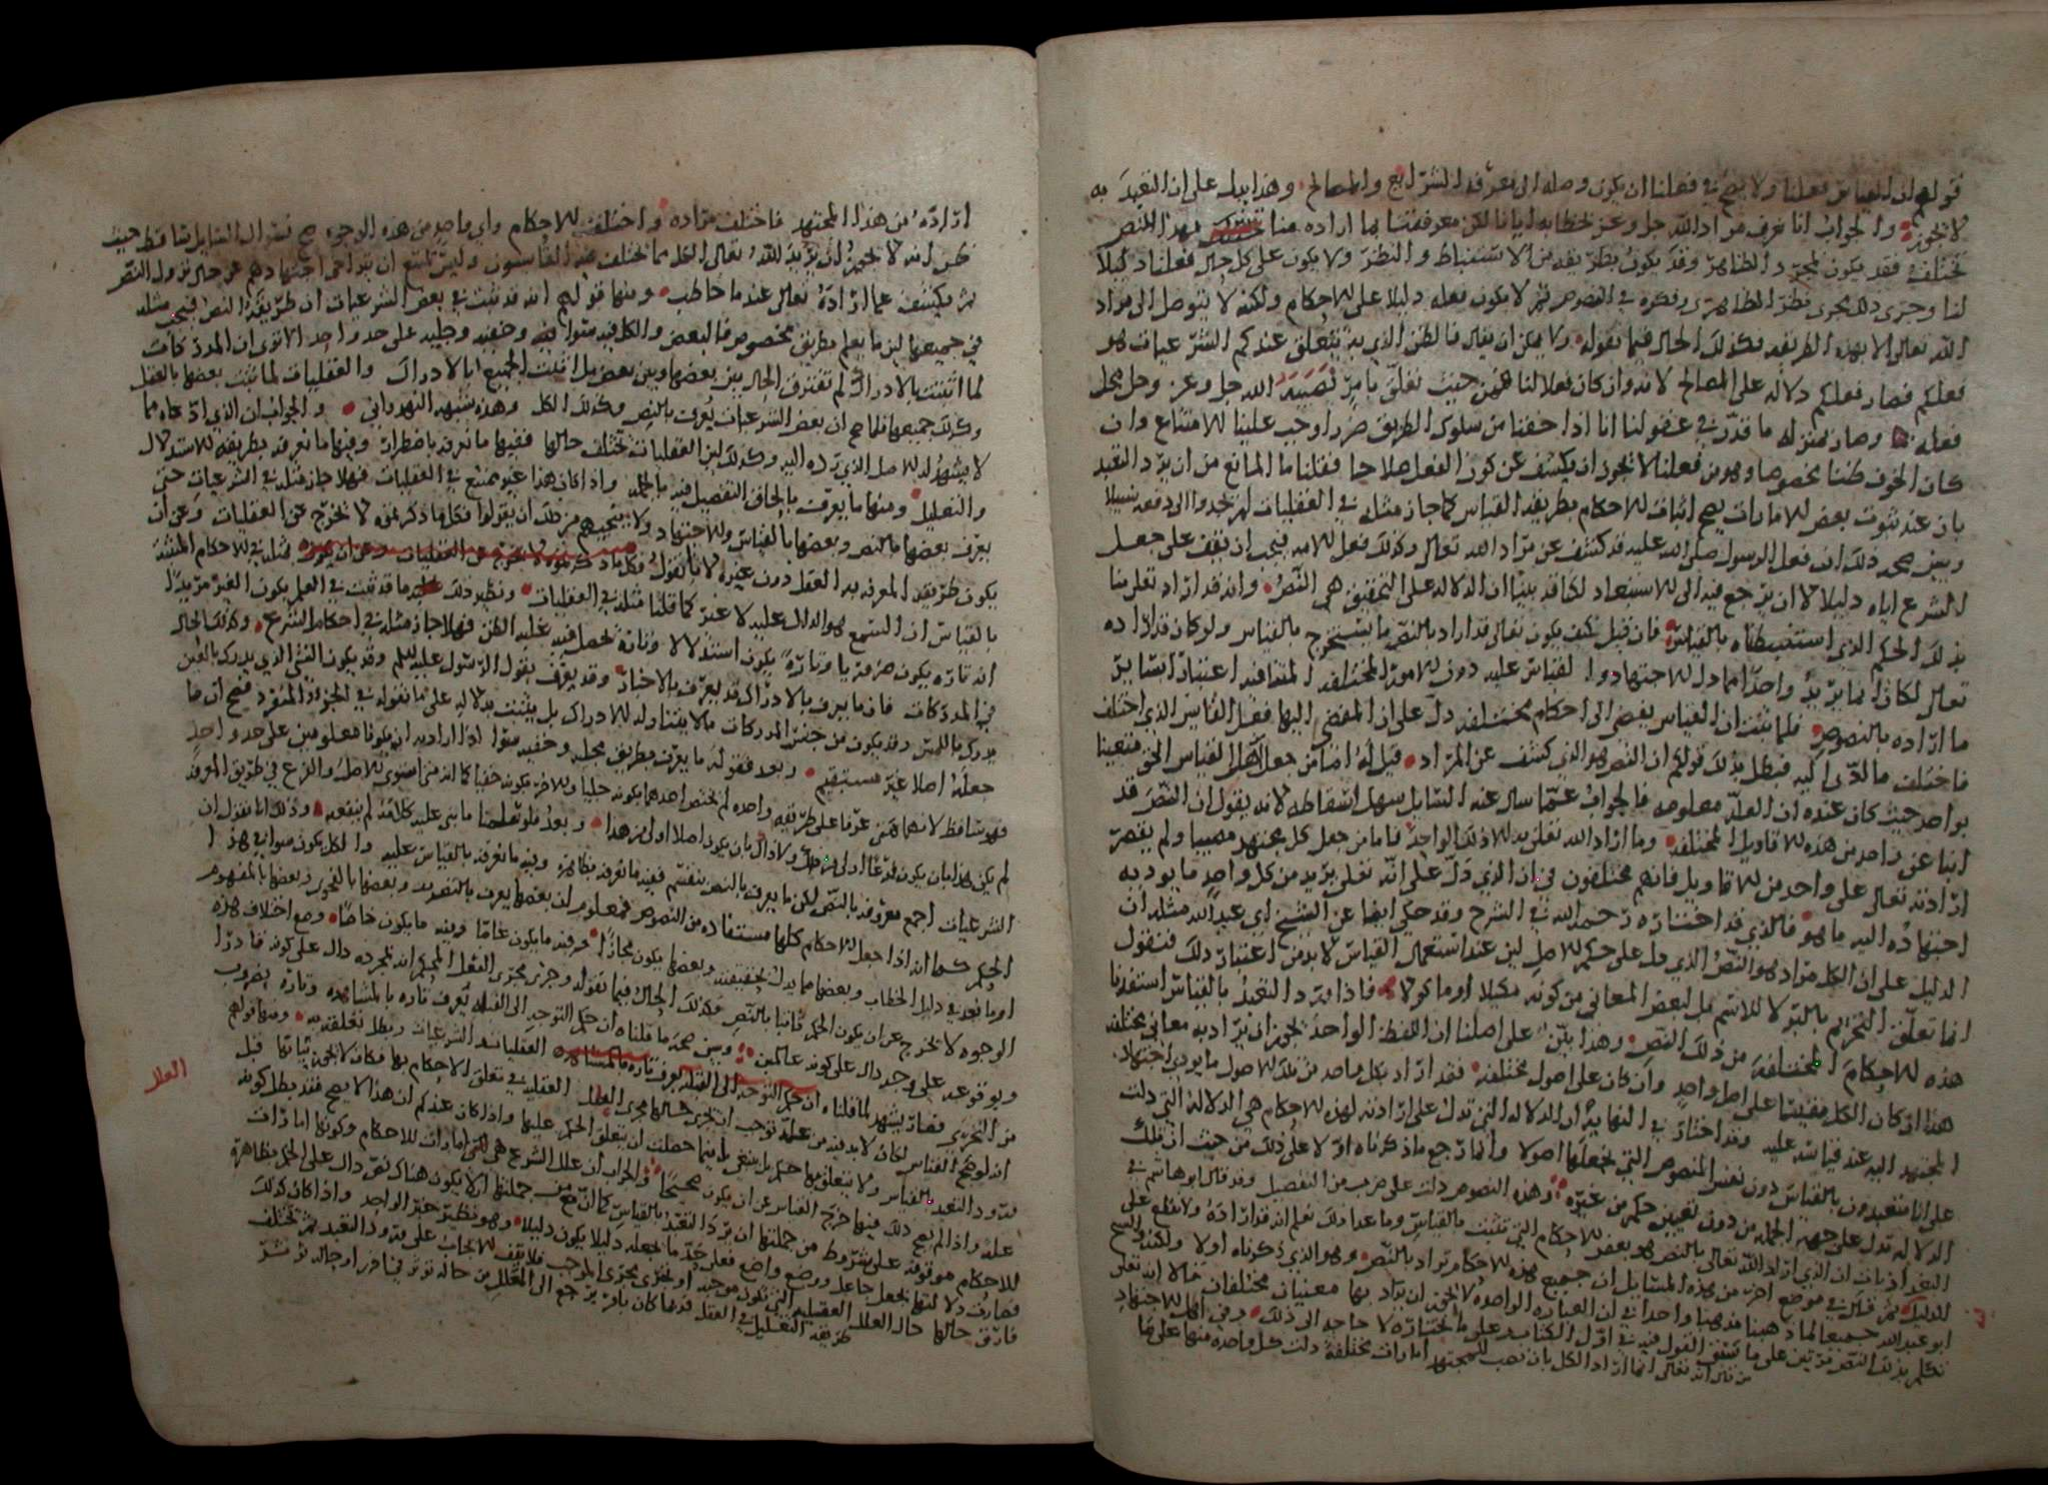 قولهم ان القياس فعلنا ولا يصح في فعلنا ان يكون وصلة الى تعرف الشرائع والمصالح وهذا يدل على ان التعبد به
لا يجوز والجواب انا نعرف مراد الله جل وعز بخطابه ايانا لكن معرفتنا بما اراده منا بهذا النص
تختلف فقد يكون بمجرد الظاهر وقد يكون بطريقة من الاستنباط والنظر ولا يكون على كل حال فعلنا دليلا
لنا وجرى ذلك مجرى نظر الناظر في النصوص ثم لا يكون فعله دليلا على الاحكام ولكنه لا يتوصل الى مراد
الله تعالى الا بهذه الطريقة فكذلك الحال فيما نقوله ولا يمكن ان يقال فالظن الذي به يتعلق عندكم الشرعيات هو
فعلكم فصار فعلكم دلالة على المصالح لانه وان كان فعلا لنا فمن حيث تعلق بامر نصبه الله جل وعز وحل محل
فعله وصار بمنزلة ما قدر في عقولنا انا اذا خفنا من سلوك الطريق ضررا وجب علينا الامتناع وان
كان الخوف ظننا مخصوصا وهو من فعلنا لا يجوز ان يكشف عن كون الفعل صلاحا فقلنا ما المانع من ان يرد التعبد
بان عند ثبوت بعض الامارات يصح اثبات الاحكام بطريقة القياس كما جاز مثله في العقليات لم يجدوا الى دفعه سبيلا
ويبين صحة ذلك ان فعل الرسول صلى الله عليه قد كشف عن مراد الله تعالى وكذلك فعل الامة فيجب ان يقف على جعل
الشرع اياه دليلا لا ان يرجع فيه الى الاستبعاد لكنا قد بينا ان الدلالة على التحقيق هي النص وانه قد اراد تعالى منا
بذلك الحكم الذي استنبطناه بالقياس فان قيل فكيف يكون تعالى قد اراد بالنص ما يستخرج بالقياس ولو كان قد اراده
تعالى لكان انما يريد واحدا مما دل الاجتهاد والقياس عليه دون الامور المختلفة المتنافية اعتبارا بسائر
ما اراده بالنصوص فلما ثبت ان القياس يفضي الى احكام مختلفة دل على ان المفضي اليها فعل القايس الذي اختلف
فاختلف ما ادى اليه فبطل بذلك قولكم ان النص هو الذي كشف عن المراد قيل له اما من جعل القياس الحق متعينا
بواحد حيث كان عنده ان العلة معلومة فالجواب عما سال عنه السايل سهل اسقاطه لانه يقول ان النص قد
انبا عن واحد من هذه الاقاويل المختلفة وما اراد الله تعالى به الا ذلك الواحد فاما من جعل كل مجتهد مصيبا ولم يقصر
ارادته تعالى على واحد من الاقاويل فانهم مختلفون في ان الذي دل على انه تعالى يريد من كل واحد ما يوديه
اجتهاده اليه ما هو فالذي قد اختاره رحمه الله في الشرح وقد حكي ايضا عن الشيخ ابي عبد الله مثله ان
الدليل على ان الكل مراد هو النص الذي دل على حكم الاصل لان عند استعمال القياس لا بد من اعتبار ذلك فنقول
انما تعلق التحريم بالبر لا للاسم بل لبعض المعاني من كونه مكيلا او ماكولا فاذا ورد التعبد بالقياس استفدنا
هذه الاحكام المختلفة من ذلك النص وهذا بين على اصلنا ان اللفظ الواحد يجوز ان يراد به معاني مختلفة
هذا ان كان الكل مقيسا على اصل واحد وان كان على اصول مختلفة فقد اراد بكل واحد من تلك الاصول ما يودي اجتهاد
المجتهد اليه عند قياسه عليه وقد اختار في النهاية ان الدلالة التي تدل على ارادته لهذه الاحكام هي الدلالة التي دلت
على انا متعبدون بالقياس دون نفس المنصوص التي نجعلها اصولا وانما رجع ما ذكرناه اولا على ذلك من حيث ان تلك
الدلالة تدل على جهة الجملة من دون تعيين حكم من غيره وهذه النصوص دلت على ضرب من التفصيل وقد قال ابو هاشم في
البغداديات ان الذي اراد الله تعالى بالنص هو بعض الاحكام التي تثبت بالقياس وما عدا ذلك نعلم انه قد اراده ولا نقطع على
الدليل ثم قال في موضع اخر من هذه المسايل ان جميع هذه الاحكام تراد بالنص وهو الذي ذكرناه اولا ولكنه والشيخ
ابو عبد الله جميعا لما ذهبنا مذهبا واحدا في ان العبارة الواحدة لا يجوز ان تراد بها معنيان مختلفان قالا انه تعالى
تكلم بذلك النص مرتين على ما تقضى القول فيه في اول الكتاب وعلى ما اختاره لا حاجة الى ذلك وفي اهل الاجتهاد
من قال انه تعالى انما اراد الكل بان نصب للمجتهد امارات مختلفة دلت كل واحدة منها على ما
اراده من هذا المجتهد فاختلف مراده واختلفت الاحكام واي واحد من هذه الوجوه صح فسوال السايل ساقط حيث
ظن انه لا يجوز ان يريد الله تعالى الكل مما يختلف فيه القايسون وليس يمتنع ان يتراخى اجتهادهم عن حال نزول النص
ثم يكشف عما اراده تعالى عند ما خاطب ومنها قولهم انه قد ثبت في بعض الشرعيات ان طريقه النص فيجب مثله
في جميعها لان ما يعلم بطريق مخصوص فالبعض والكل فيه سوا وخفيه وجليه على حد واحد الا ترى ان المدركات
لما اثبتت بالادراك لم تفترق الحال بين بعضها وبين بعض بل اثبت الجميع بالادراك والعقليات لما ثبت بعضها بالعقل
وكذلك جميعها فلما صح ان بعض الشرعيات يعرف بالنص وكذلك الكل وهذه شبهة النهرواني والجواب ان الذي ادعاه مما
لا يشهد له الاصل الذي رده اليه وكذلك لان العقليات تختلف حالها ففيها ما نعرفه باضطرار وفيها ما نعرفه بطريقة الاستدلال
والتعليل ومنها ما يعرف بالحاق التفصيل فيه بالجملة واذا كان هذا غير ممتنع في العقليات فهلا جاز مثله في الشرعيات حتى
يعرف بعضها بالنص وبعضها بالقياس والاجتهاد ولا ينجيهم من ذلك ان يقولوا فكل ما ذكرتموه لا يخرج عن العقليات وعن ان
يكون طريقة المعرفة به العقل دون غيره لانا نقول فكل ما ذكرتموه مثله في الاحكام المثبتة
بالقياس ان السمع هو الدال عليه لا غير كما قلنا مثله في العقليات ونظير ذلك ما قد ثبت في العلم بكون الغير مريدا
انه تارة يكون ضرورة وتارة يكون استدلالا وتارة نحصل فيه على الظن فهلا جاز مثله في احكام الشرع وكذلك الحال
في المدركات فان ما يعرف بالادراك قد يعرف بالاخبار وقد يعرف بقول الرسول عليه السلام وقد يكون الشي الذي يدرك بالعين
يدرك باللمس وقد يكون من جنس المدركات ما لا يتناوله الادراك بل يثبت بدلالة على ما نقوله في الجزء المنفرد فصح ان ما
جعله اصلا غير مستقيم وبعد فقوله ما يعرف بطريق فجليه وخفيه سوا اذا اراد به ان يكونا معلومين على حد واحد
فهو ساقط لانهما متى عرفا على طريقة واحدة لم يختص احدهما بكونه جليا والاخر بكونه خفيا كما انه متى استوى الاصل والفرع في طريق المعرفة
لم يكن هذا بان يكون فرعا اولى من ذلك ولا ذاك بان يكون اصلا اولى من هذا وبعد فلو سلمنا ما بنى عليه كلامه لم ينفعه وذلك انا نقول ان
الشرعيات اجمع معروفة بالنص لكن ما يعرف بالنص ينقسم ففيه ما نعرفه بظاهره وفيه ما نعرفه بالقياس عليه والكل يكون سوا في هذا
الحكم كما انه اذا جعل الاحكام كلها مستفادة من النصوص فمعلوم ان بعضها يعرف بالتصريح وبعضها بالفحوى وبعضها بالمفهوم
او ما نعده في دليل الخطاب وبعضها مما يدل بحقيقته وبعضها يكون مجازا ثم فيه ما يكون عاما وفيه ما يكون خاصا ومع اختلاف هذه
الوجوه لا يخرج عن ان يكون الحكم ثابتا بالنص فكذلك الحال فيما نقوله وجرى مجرى الفعل المحكم انه بمجرده دال على كونه قادرا
وبوقوعه على وجه دال على كونه عالما ويبين صحة ما قلناه ان حكم التوجه الى القبلة يعرف تارة بالمشاهدة وتارة بضروب
من التحري فصار يشهد لما قلناه العقليات والشرعيات وبطل تعلقه به ومنها قولهم
انه لو صح القياس لكان لا بد فيه من علة توجب ان يجري حالها مجرى العلل العقلية في تعلق الاحكام بها فكان لا يجوز ثباتها قبل
ورود التعبد بالقياس ولا يتعلق بها حكم بل ينبغي كما حصلت ان يتعلق الحكم عليها واذا كان عندكم ان هذا لا يصح فقد بطل كونه
علة واذا لم يصح ذلك فيها خرج القياس عن ان يكون صحيحا والجواب ان علل الشرع هي امارات للاحكام وكونها امارات
للاحكام موقوفة على شروط من جملتها ان يرد التعبد بالقياس كما ان من جملتها ان لا يكون هناك نص دال على الحكم بظاهره
فصارت دلالتها بجعل جاعل ووضع واضع فعلى حد ما يجعله دليلا يكون دليلا وهو نظير خبر الواحد واذا كان كذلك
فارق حالها حال العلل العقلية التي تكون موجبة او تجري مجرى الموجب فلا يقف الايجاب على ورود التعبد ثم تختلف
طريقة التعليل في العقل فربما كان بامر يرجع الى المعلل من حالة تؤثر في اخر او حالة
العلل